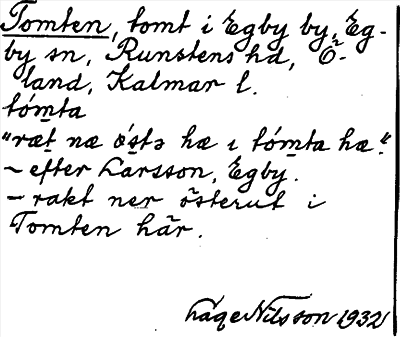 Tomten, tomt i Egby by, Eg-
by sn, Runstens hd, Ö-
land, Kalmar l.
tómta
"ræt næ óstə hæ ı tómta hæ."
~ efter Larsson, Egby.
– rakt ner österut i
Tomten här.
Nilsson 1932